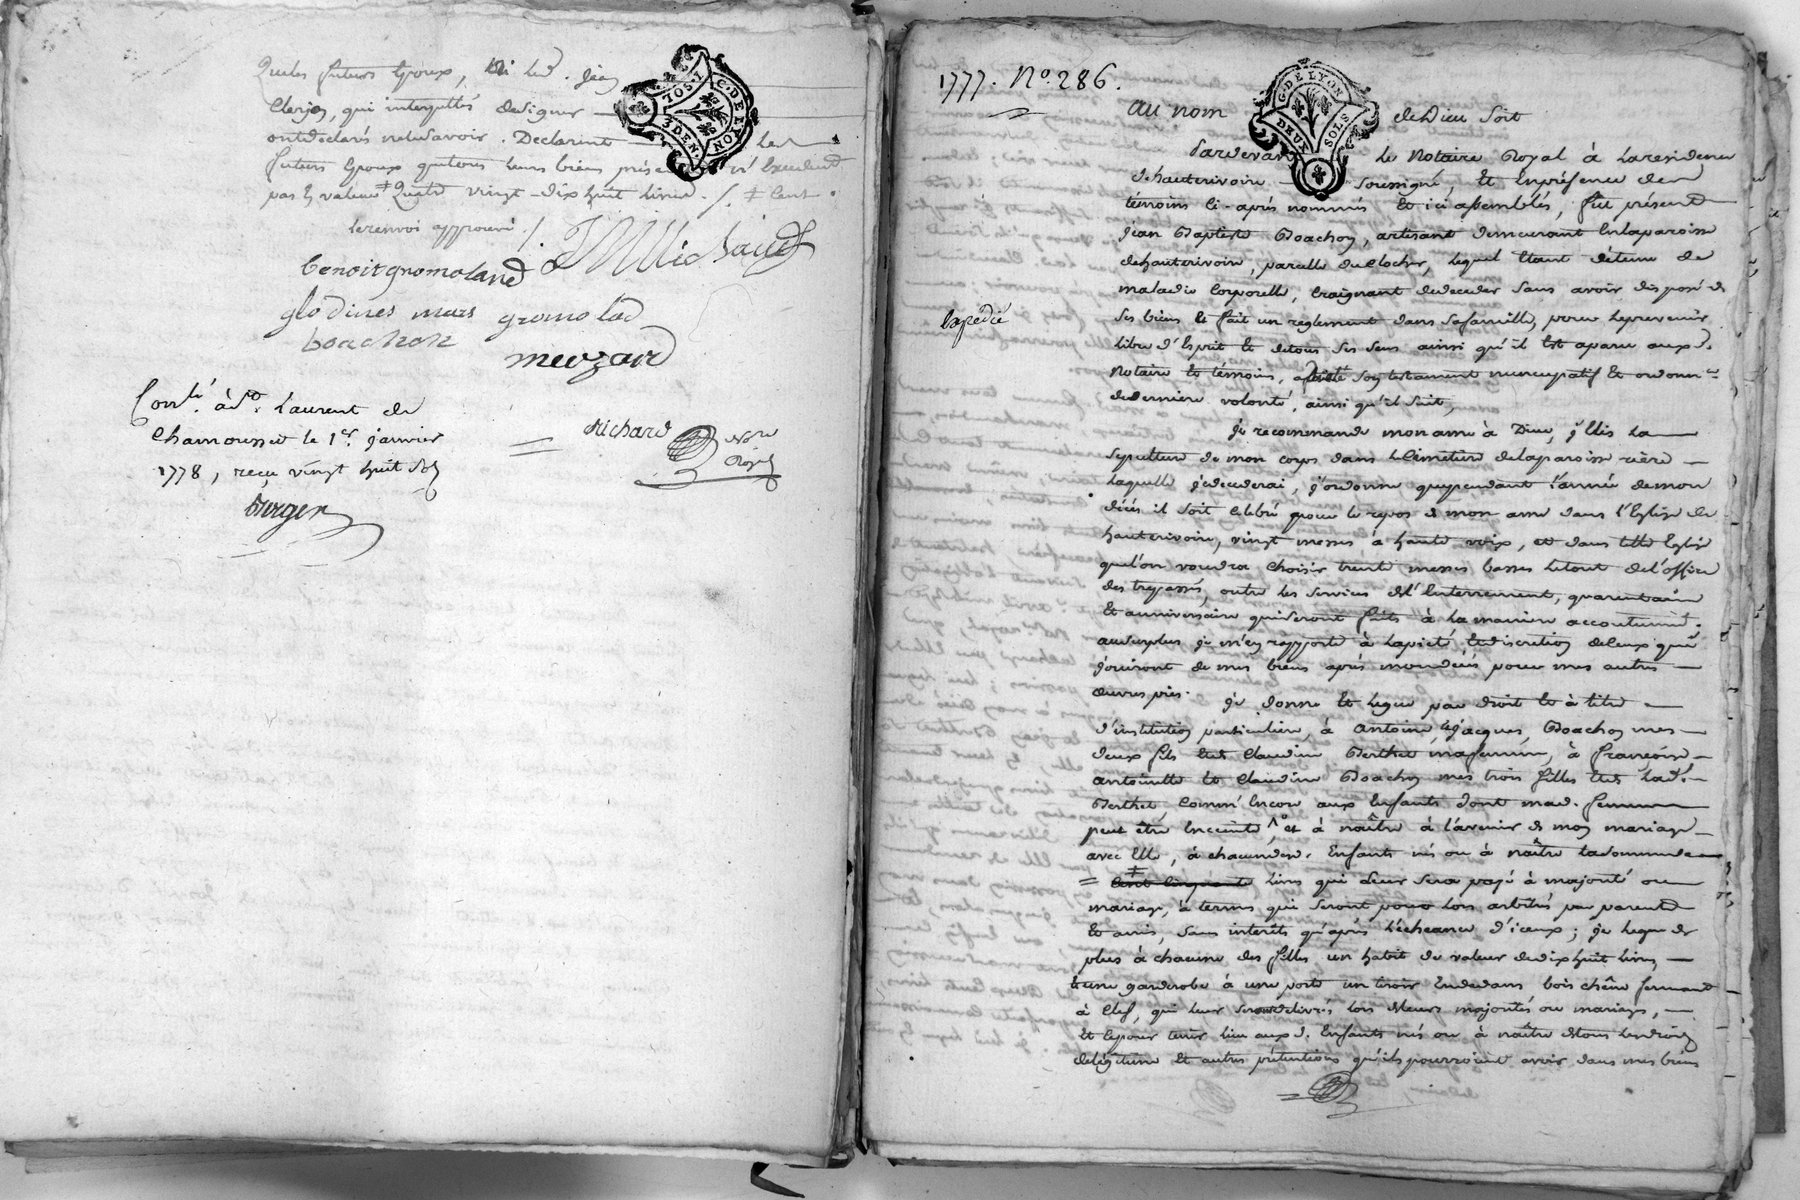 Que les futurs Epoux, ni led. Jean
Clerjon, qui interpellés de signer
ont déclaré ne le savoir. Declarent les
futurs Epoux que tous leurs biens présents n'excedent
pas la valeur ‡ que de vingt-dix huit livres ./. ‡ cent.
le renvoi approuvé ./.
Michaud
benoit gromoland
glodines mars gromolad
boachon
meozard
Conlé. à St. Laurent de
Chamousset le 1er. janvier
1778, reçu vingt huit sols
Berger
Richard Nore
Royal
C. DE LYON
3 DEN.
1777. No. 286.
G. DE LYON
DEUX SOLS
au nom de Dieu soit
Pardevant le Notaire Royal à la residence
de hauterivoire soussigné, Et En présence des
témoins ci-après nommés Et ici assemblés, fut présent
Jean Baptiste Boachon, artisant demeurant En la paroisse
de hauterivoire, parcelle du Clocher, lequel Etant détenu de
maladie Corporelle, Craignant de deceder sans avoir disposé de
Expédié
ses biens Et fait un reglement dans sa famille, pour le prevenir
libre d'Esprit Et de tous ses sens ainsi qu'il Est aparu auxd.
Notaire Et témoins, a fait son testament nuncupatif Et ordonnce
de derniere volonté, ainsi qu'il suit,
Je recommande mon ame à Dieu, j'Elis la
sepulture de mon corps dans le Cimetiere de la paroisse riere
laquelle je decederai, j'ordonne que pendant l'année de mon
décés il soit celebré pour le repos de mon ame dans l'Eglise de
hauterivoire, vingt messes à haute voix, et dans telle Eglise
que l'on voudra choisir trente messes basses le tout de l'office
des trepassés, outre les services de l'Enterrement, quarantaine
Et anniversaire qui seront faits à la maniere accoutumée.
au surplus je m'en rapporte à la pieté Et discretion de Ceux qui
jouiront de mes biens après mon décés pour mes autres
œuvres pies. Je donne Et legue par droit Et à titre
d'institution particuliere, à Antoine, Et Jacques, Boachon mes
deux fils Et de Claudine Berthet ma femme, à Françoise
Antoinette Et Claudine Boachon mes trois filles Et de lade.
Berthet, Comm'Encore aux Enfants dont mad. femme
peut être Enceinte, et à naître à l'avenir de mon mariage
avec Elle, à chacun desd. Enfants nés ou à naître la somme de
= cent cinquante livres qui Leur sera payé à majorité ou
mariage, à termes qui seront pour lors arbitrés par parents
Et amis, sans interêts qu'après l'échéance d'iceux; je legue de
plus à chacune des filles un habit de valeur de dix huit livres,
Et une garderobe à une porte un tiroir En dedans bois chêne fermant
à Clef, qui leur seront délivrés lors de leurs majorités ou mariage,
Et Ce pour tenir lieu auxd. Enfants nés ou à naître de tous les droits
de légitime Et autres prétentions qu'ils pourroient avoir dans mes biens